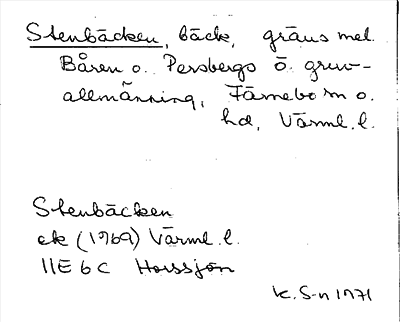 Stenbäcken, bäck, gräns mel.
Båren o. Persbergs ö. gruv-
allmänning, Färnebo sn o.
hd, Värml. l.
Stenbäcken
ek (1969) Värml. l.
11E 6c Horssjön
K. S-n 1971